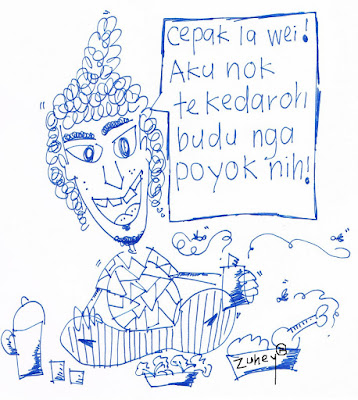 Cepak la wei!
Aku nok
tekedaroh
budu nga
poyok nih!
Zuhey